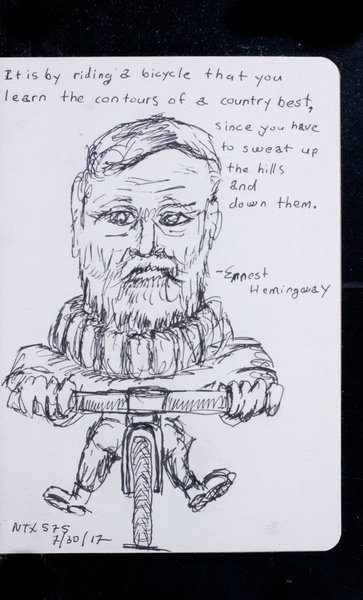 It is by riding a bicycle that you
learn the contours of a country best,
since you have
to sweat up
the hills
and
down them.
-Ernest
Hemingway
NTX S75
7/30/17